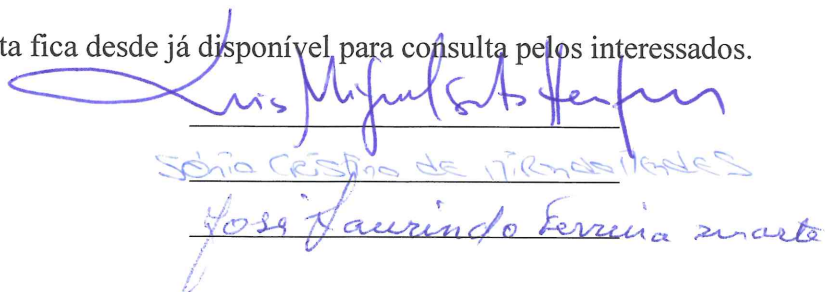 ta fica desde já disponível para consulta pelos interessados.
Luis Miguel Santos
Sónia Cristina de Miranda Mendes
José Laurindo Ferreira Duarte